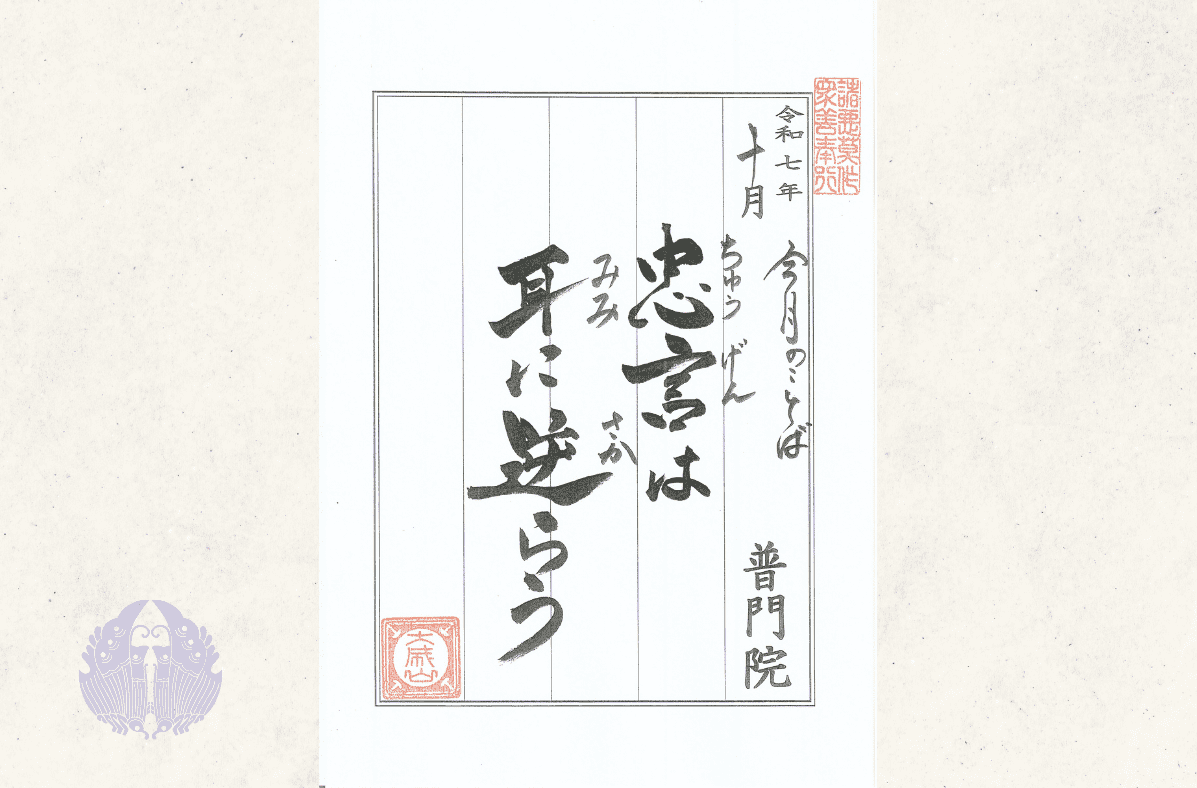 諸悪莫作
衆善奉行
令和七年
十月
今月のことば
普門院
ちゅうげん
忠言は
みみ さか
耳に逆らう